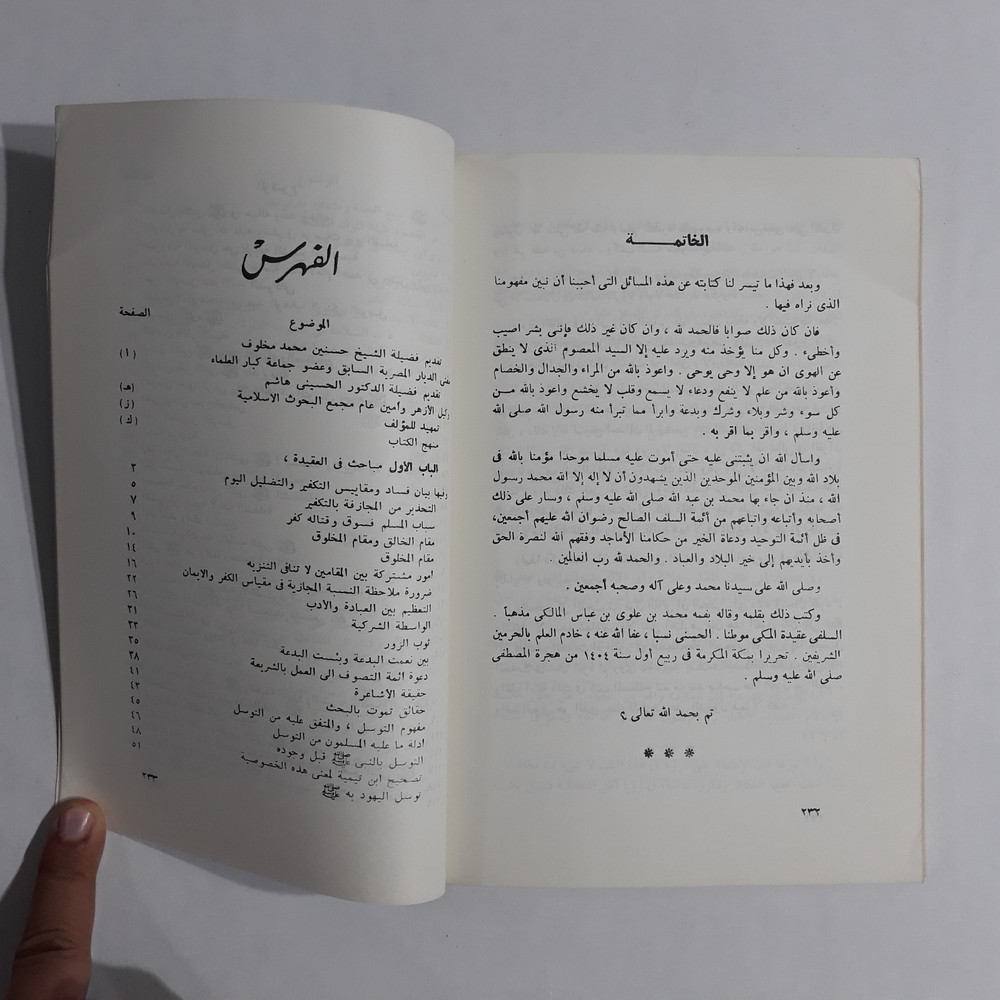 الخاتمـــــة
وبعد فهذا ما تيسر لنا كتابته عن هذه المسائل التى أحببنا أن نبين مفهومنا
الذى نراه فيها .
فان كان ذلك صوابا فالحمد لله ، وان كان غير ذلك فإننى بشر اصيب
وأخطىء . وكل منا يؤخذ منه ويرد عليه إلا السيد المعصوم الذى لا ينطق
عن الهوى ان هو إلا وحى يوحى . واعوذ بالله من المراء والجدال والخصام
وأعوذ بالله من علم لا ينفع ودعاء لا يسمع وقلب لا يخشع واعوذ بالله مـــن
كل سوء وشر وبلاء وشرك وبدعة وابرأ مما تبرأ منه رسول الله صلى الله
عليه وسلم ، واقر بما اقر به .
واسأل الله ان يثبتنى عليه حتى أموت عليه مسلما موحدا مؤمنا بالله فى
بلاد الله وبين المؤمنين الموحدين الذين يشهدون أن لا إله إلا الله محمد رسول
الله ، منذ ان جاء بها محمد بن عبد الله صلى الله عليه وسلم ، وسار على ذلك
أصحابه وأتباعه واتباعهم من أئمة السلف الصالح رضوان الله عليهم أجمعين،
فى ظل أئمة التوحيد ودعاة الخير من حكامنا الأماجد وفقهم الله لنصرة الحق
وأخذ بأيديهم إلى خير البلاد والعباد . والحمد لله رب العالمين .
وصلى الله على سيدنا محمد وعلى آله وصحبه أجمعين .
وكتب ذلك بقلمه وقاله بفمه محمد بن علوى بن عباس المالكى مذهباً .
السلفى عقيدة المكى موطنا . الحسنى نسبا ، عفا الله عنه ، خادم العلم بالحرمين
الشريفين . تحريرا بمكة المكرمة فى ربيع أول سنة ١٤٠٤ من هجرة المصطفى
صلى الله عليه وسلم .
تم بحمد الله تعالى
٢٣٢
الفهرس
الموضوع الصفحة
تقديم فضيلة الشيخ حسنين محمد مخلوف
مفتى الديار المصرية السابق وعضو جماعة كبار العلماء (١)
تقديم فضيلة الدكتور الحسينى هاشم
وكيل الأزهر وأمين عام مجمع البحوث الاسلامية (هـ)
تمهيد للمؤلف (ز)
منهج الكتاب (ك)
الباب الأول مباحث فى العقيدة ،
وفيها بيان فساد ومقاييس التكفير والتضليل اليوم ٣
التحذير من المجازفة بالتكفير ٥
سباب المسلم فسوق وقتاله كفر ٧
مقام الخالق ومقام المخلوق ٩
مقام المخلوق ١٠
امور مشتركة بين المقامين لا تنافى التنزيه ١٤
ضرورة ملاحظة النسبة المجازية فى مقياس الكفر والايمان ١٦
التعظيم بين العبادة والأدب ٢٢
الواسطة الشركية ٢٦
ثوب الزور ٣١
بين نعمت البدعة وبئست البدعة ٣٣
دعوة ائمة التصوف الى العمل بالشريعة ٣٥
حقيقة الأشاعرة ٣٨
حقائق تموت بالبحث ٤١
مفهوم التوسل ، والمتفق عليه من التوسل ٤٣
ادلة ما عليه المسلمون من التوسل ٤٥
التوسل بالنبى ﷺ قبل وجوده ٤٦
تصحيح ابن تيمية لمعنى هذه الخصوصية ٤٨
توسل اليهود به ﷺ ٥١
٢٣٣